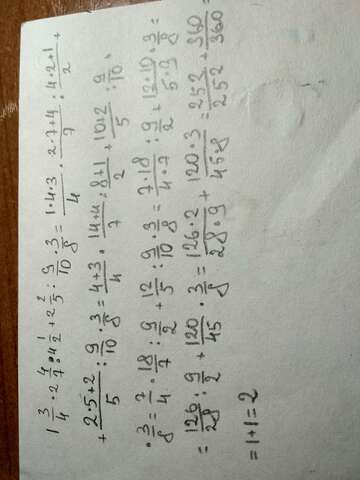 1 3/4 · 2 4/7 : 4 1/2 + 2 2/5 : 9/10 · 3/8 = 1·4·3/4 · 2·7+4/7 : 4·2+1/2 +
+ 2·5+2/5 : 9/10 · 3/8 = 4+3/4 · 14+4/7 : 8+1/2 + 10+2/5 : 9/10 ·
· 3/8 = 7/4 · 18/7 : 9/2 + 12/5 : 9/10 · 3/8 = 7·18/4·7 : 9/2 + 12·10/5·9 · 3/8 =
= 126/28 : 9/2 + 120/45 · 3/8 = 126·2/28·9 + 120·3/45·8 = 252/252 + 360/360 =
= 1+1=2